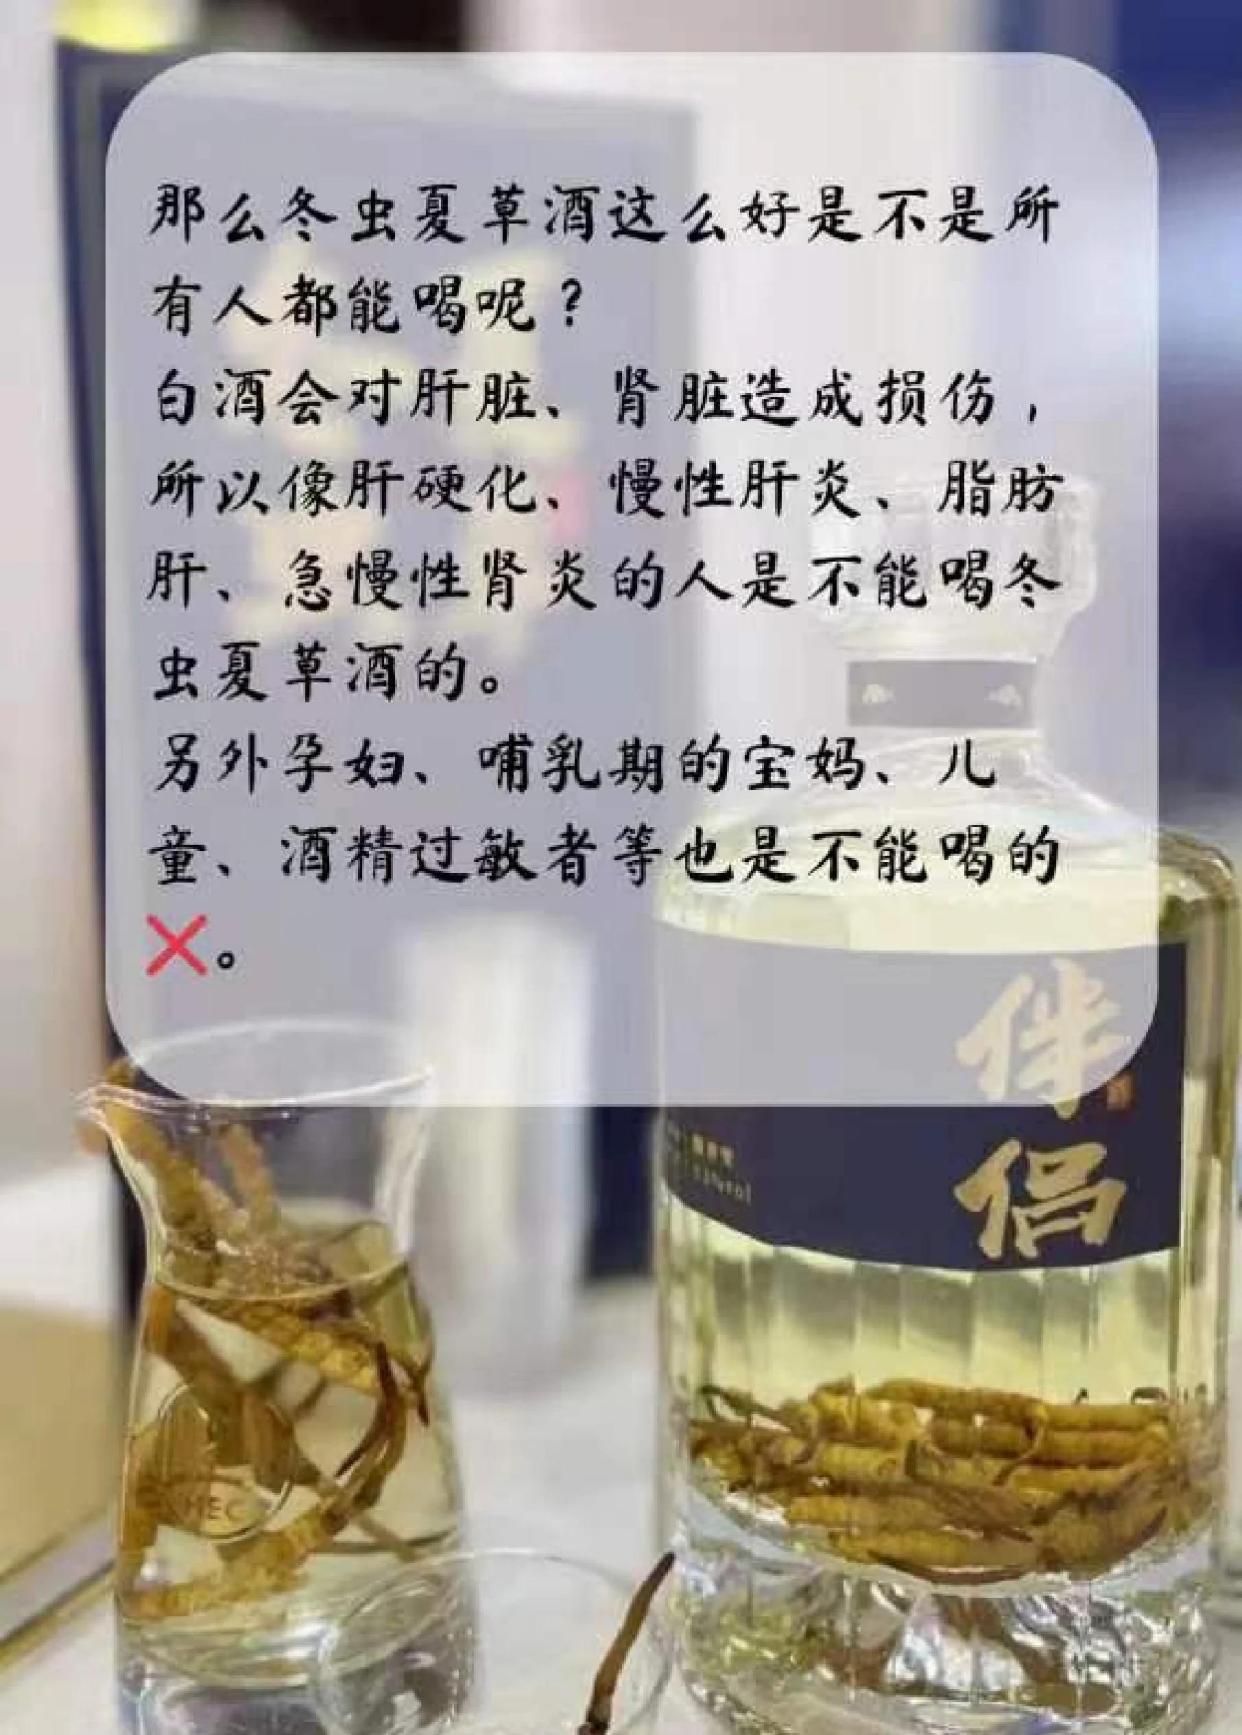 那么冬虫夏草酒这么好是不是所
有人都能喝呢？
白酒会对肝脏、肾脏造成损伤，
所以像肝硬化、慢性肝炎、脂肪
肝、急慢性肾炎的人是不能喝冬
虫夏草酒的。
另外孕妇、哺乳期的宝妈、儿
童、酒精过敏者等也是不能喝的
❌。
伴
侣